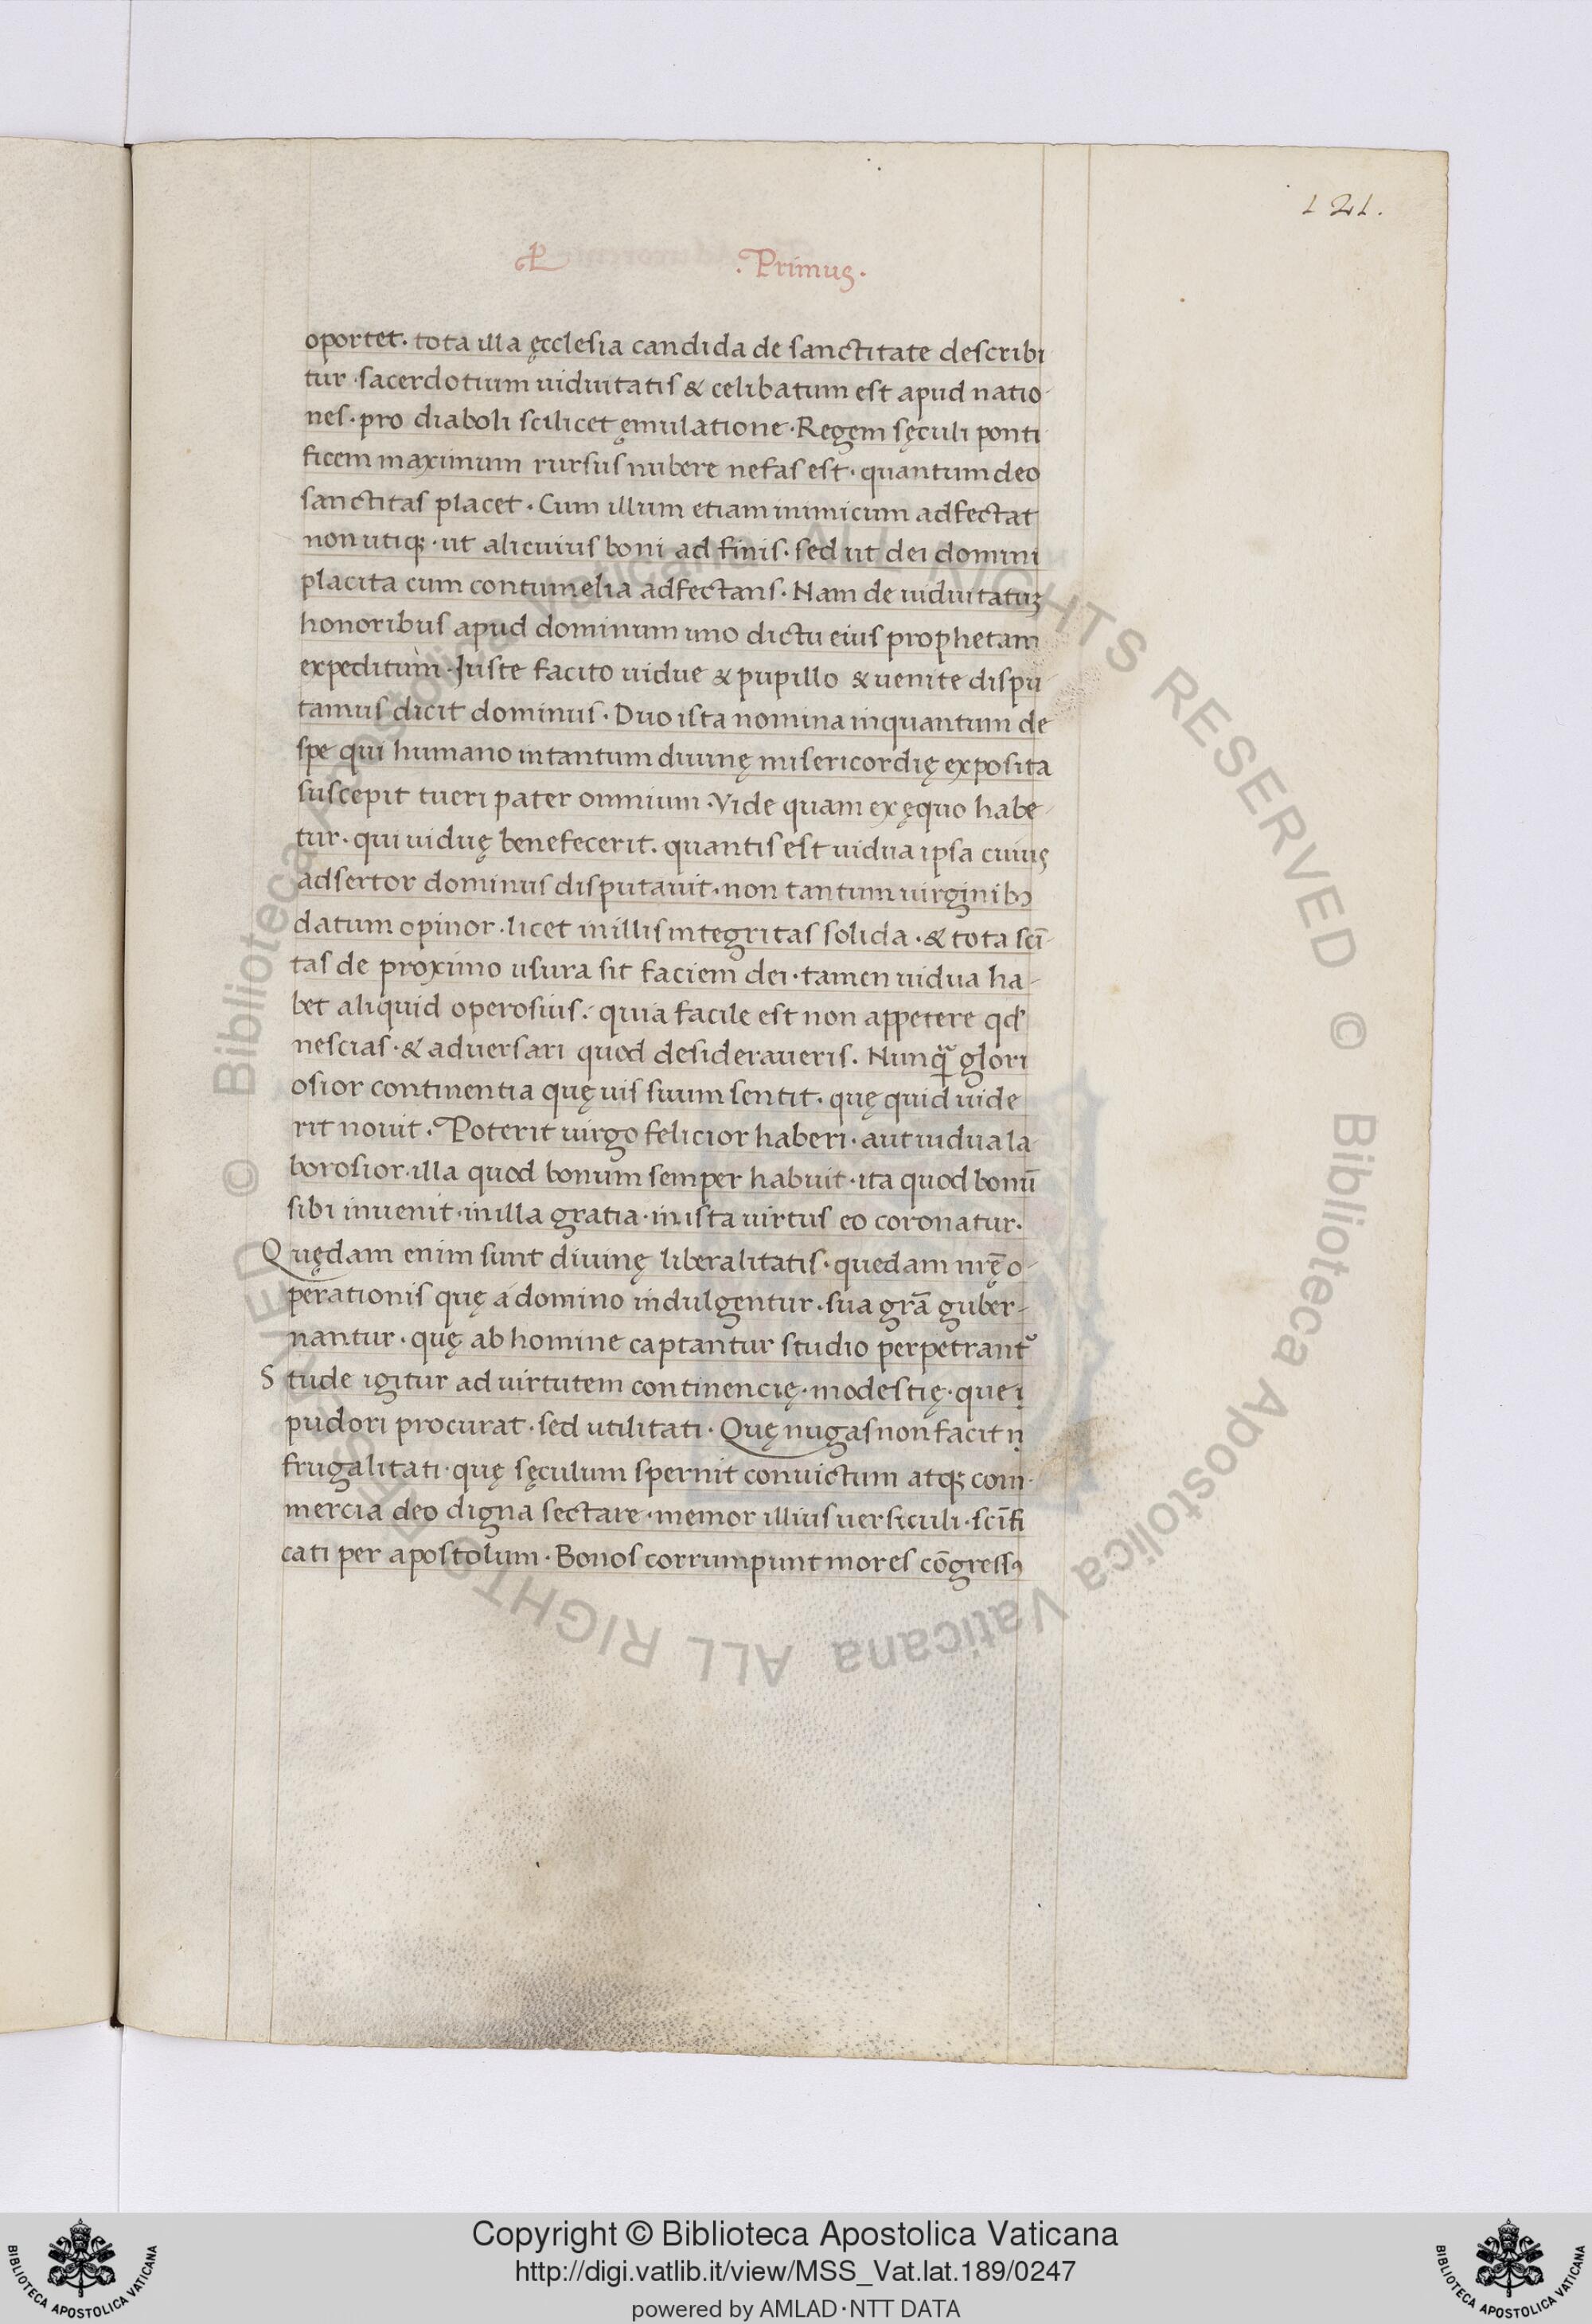 121.
.Primus.
oportet· tota illa ęcclesia candida de sanctitate describi
tur·sacerdotium uiduitatis & celibatum est apud natio-
nes·pro diaboli scilicet ęmulatione·Regem sęculi ponti
ficem maximum rursus nubere nefas est·quantum deo
sanctitas placet·Cum illum etiam inimicum adfectat
non utiq;·ut alicuius boni ad finis·sed ut dei domini
placita cum contumelia adfectans·Nam de uiduitatuʒ
honoribus apud dominum uno dictu eius prophetam
expeditum·Iuste facito uidue & pupillo & uenite dispu
tamus dicit dominus·Duo ista nomina inquantum de
spe qui humano intantum diuinę misericordię exposita
suscepit tueri pater omnium·Vide quam ex ęquo habe-
tur·qui uiduę benefecerit·quantis est uidua ipsa cuius
adsertor dominus disputauit·non tantum uirginibꝫ
datum opinor·licet in illis integritas solida·& tota scī-
tas de proximo usura sit faciem dei·tamen uidua ha-
bet aliquid operosius·quia facile est non appetere qd̛
nescias·& aduersari quod desideraueris·Nunq̃ glori
osior continentia quę uis suum sentit·quę quid uide
rit nouit·Poterit uirgo felicior haberi·aut uidua la
borosior·illa quod bonum semper habuit·ita quod bonū
sibi inuenit·in illa gratia·in ista uirtus eo coronatur·
Quędam enim sunt diuinę liberalitatis·quedam nr̄ę o-
perationis quę á domino indulgentur·sua grā guber-
nantur·quę ab homine captantur studio perpetrant᷑
Stude igitur ad uirtutem continencię·modestię·que i
pudori procurat·sed utilitati·Quę nugas non facit n
frugalitati·quę sęculum spernit conuictum atq; com-
mercia deo digna sectare·memor illius uersiculi·scīfi
cati per apostolum·Bonos corrumpunt mores cōgressꝰ
© Biblioteca Apostolica Vaticana ALL RIGHTS RESERVED © Biblioteca Apostolica Vaticana ALL RIGHTS RESERVED
Copyright © Biblioteca Apostolica Vaticana
http://digi.vatlib.it/view/MSS_Vat.lat.189/0247
powered by AMLAD·NTT DATA
BIBLIOTECA APOSTOLICA VATICANA
BIBLIOTECA APOSTOLICA VATICANA